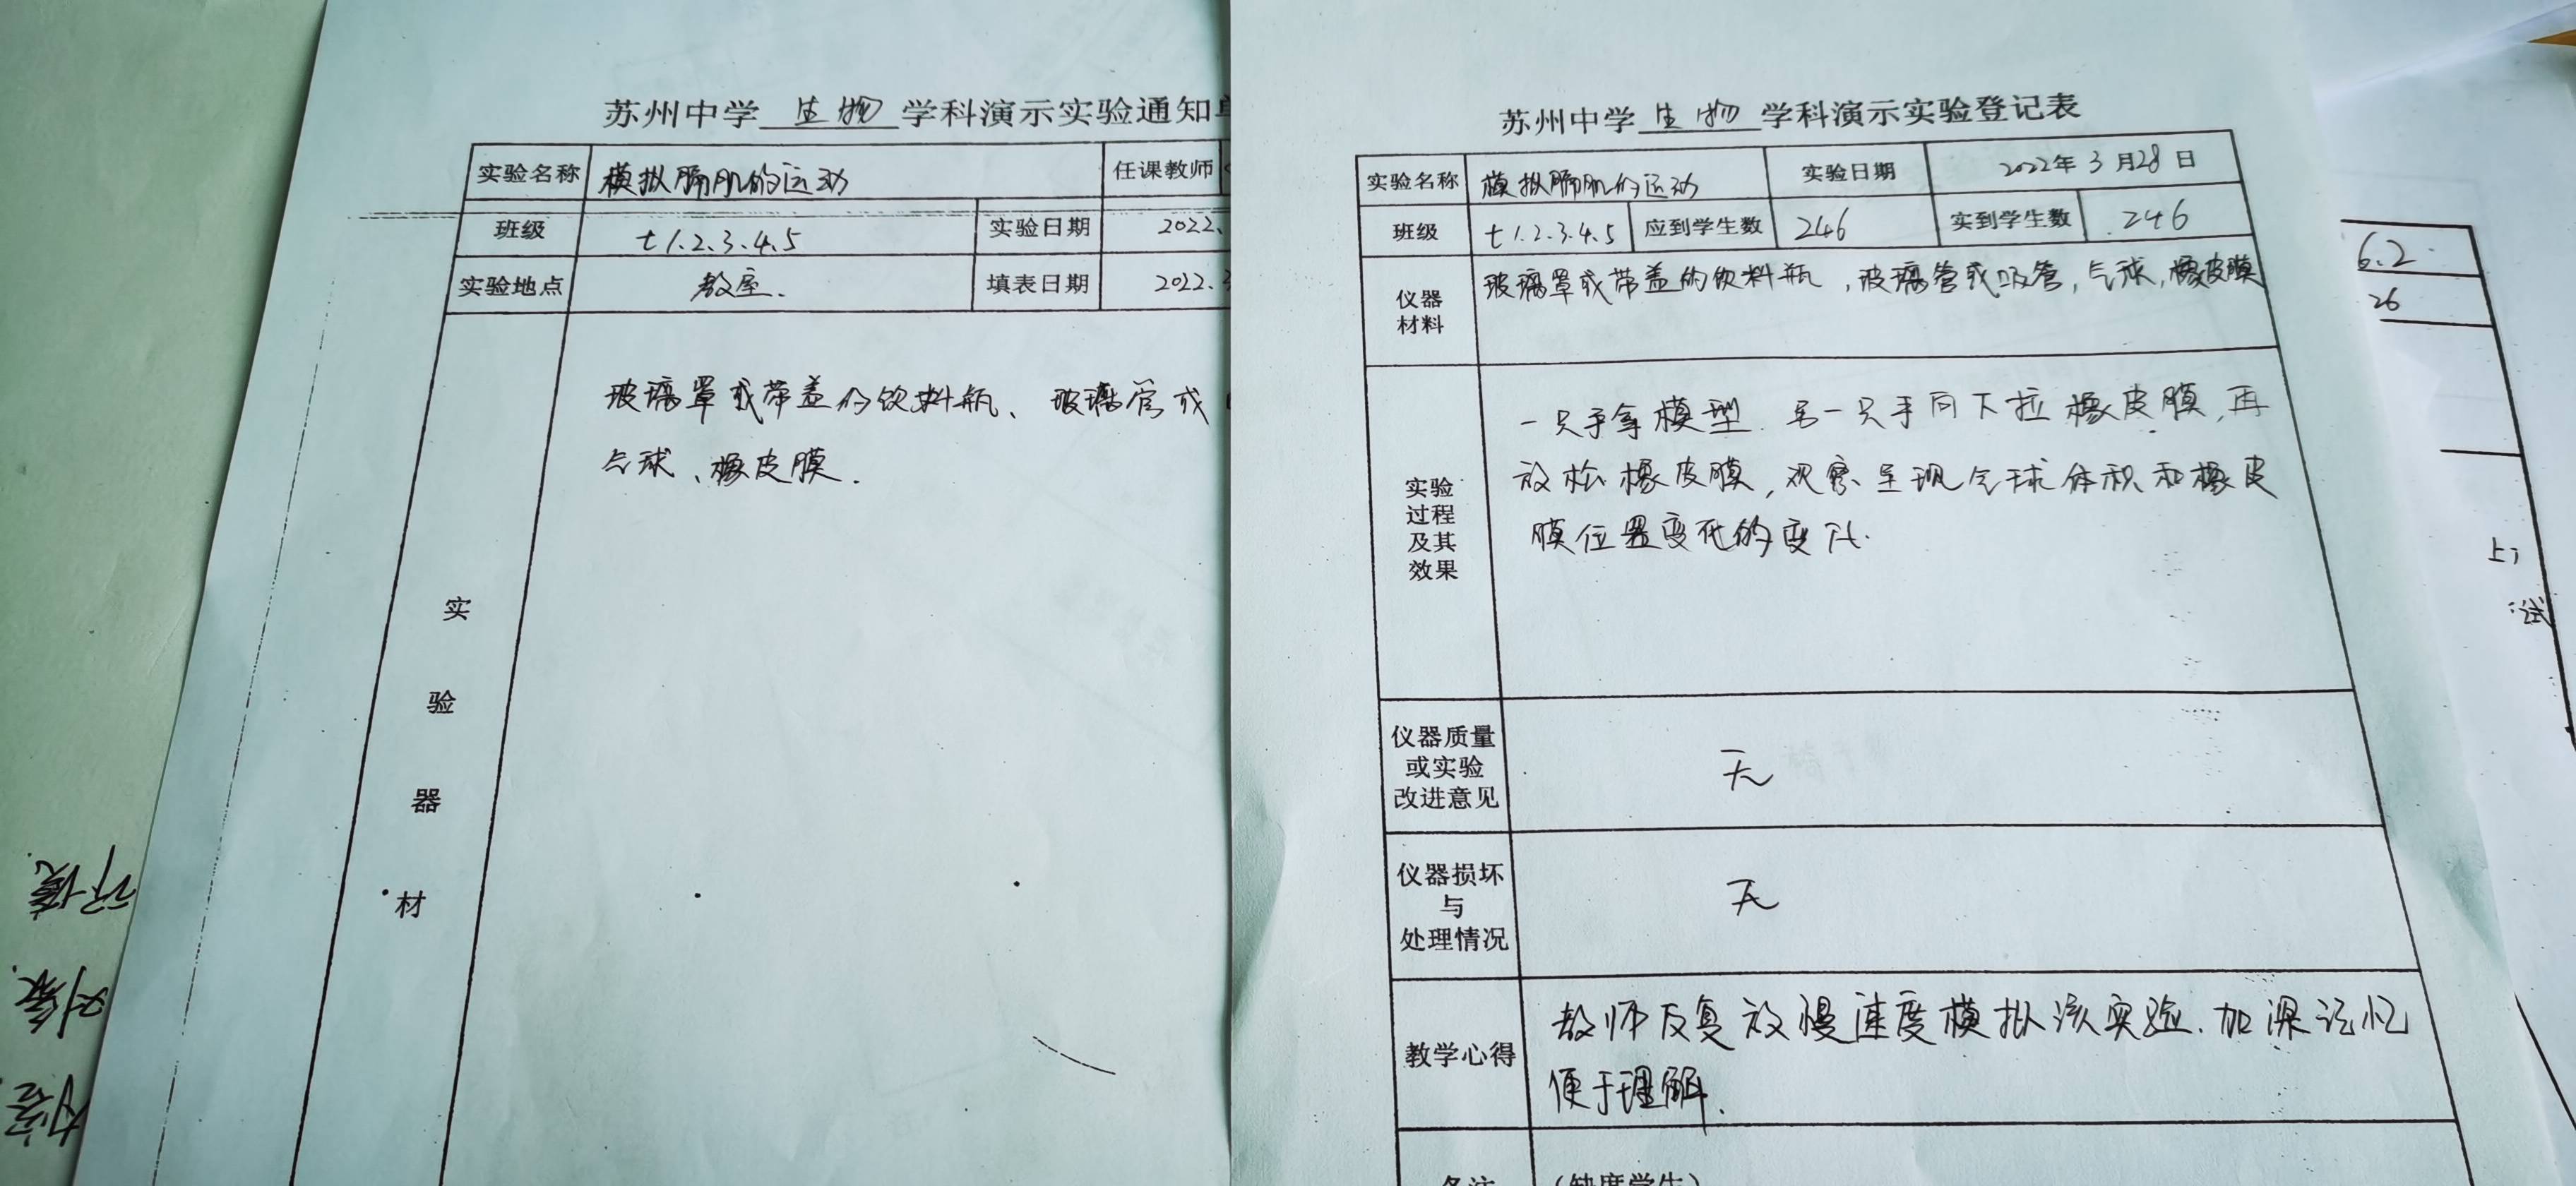 苏州中学 生物 学科演示实验通知
实验名称 模拟膈肌的运动 任课教师
班级 七1.2.3.4.5 实验日期 2022.
实验地点 教室. 填表日期 2022.
实验器材
玻璃罩或带盖的饮料瓶、玻璃管或
气球、橡皮膜.
苏州中学 生物 学科演示实验登记表
实验名称 模拟膈肌的运动 实验日期 2022年 3 月28 日
班级 七1.2.3.4.5 应到学生数 246 实到学生数 246
仪器材料 玻璃罩或带盖的饮料瓶，玻璃管或吸管，气球，橡皮膜
实验过程及其效果
一只手拿模型.另一只手向下拉橡皮膜,再
放松橡皮膜,观察呈现气球体积和橡皮
膜位置变化的变化.
仪器质量或实验改进意见 无
仪器损坏与处理情况 无
教学心得
教师反复放慢速度模拟该实验.加深记忆
便于理解.
备注 (缺席学生)
6.2
26
试
对象
内容